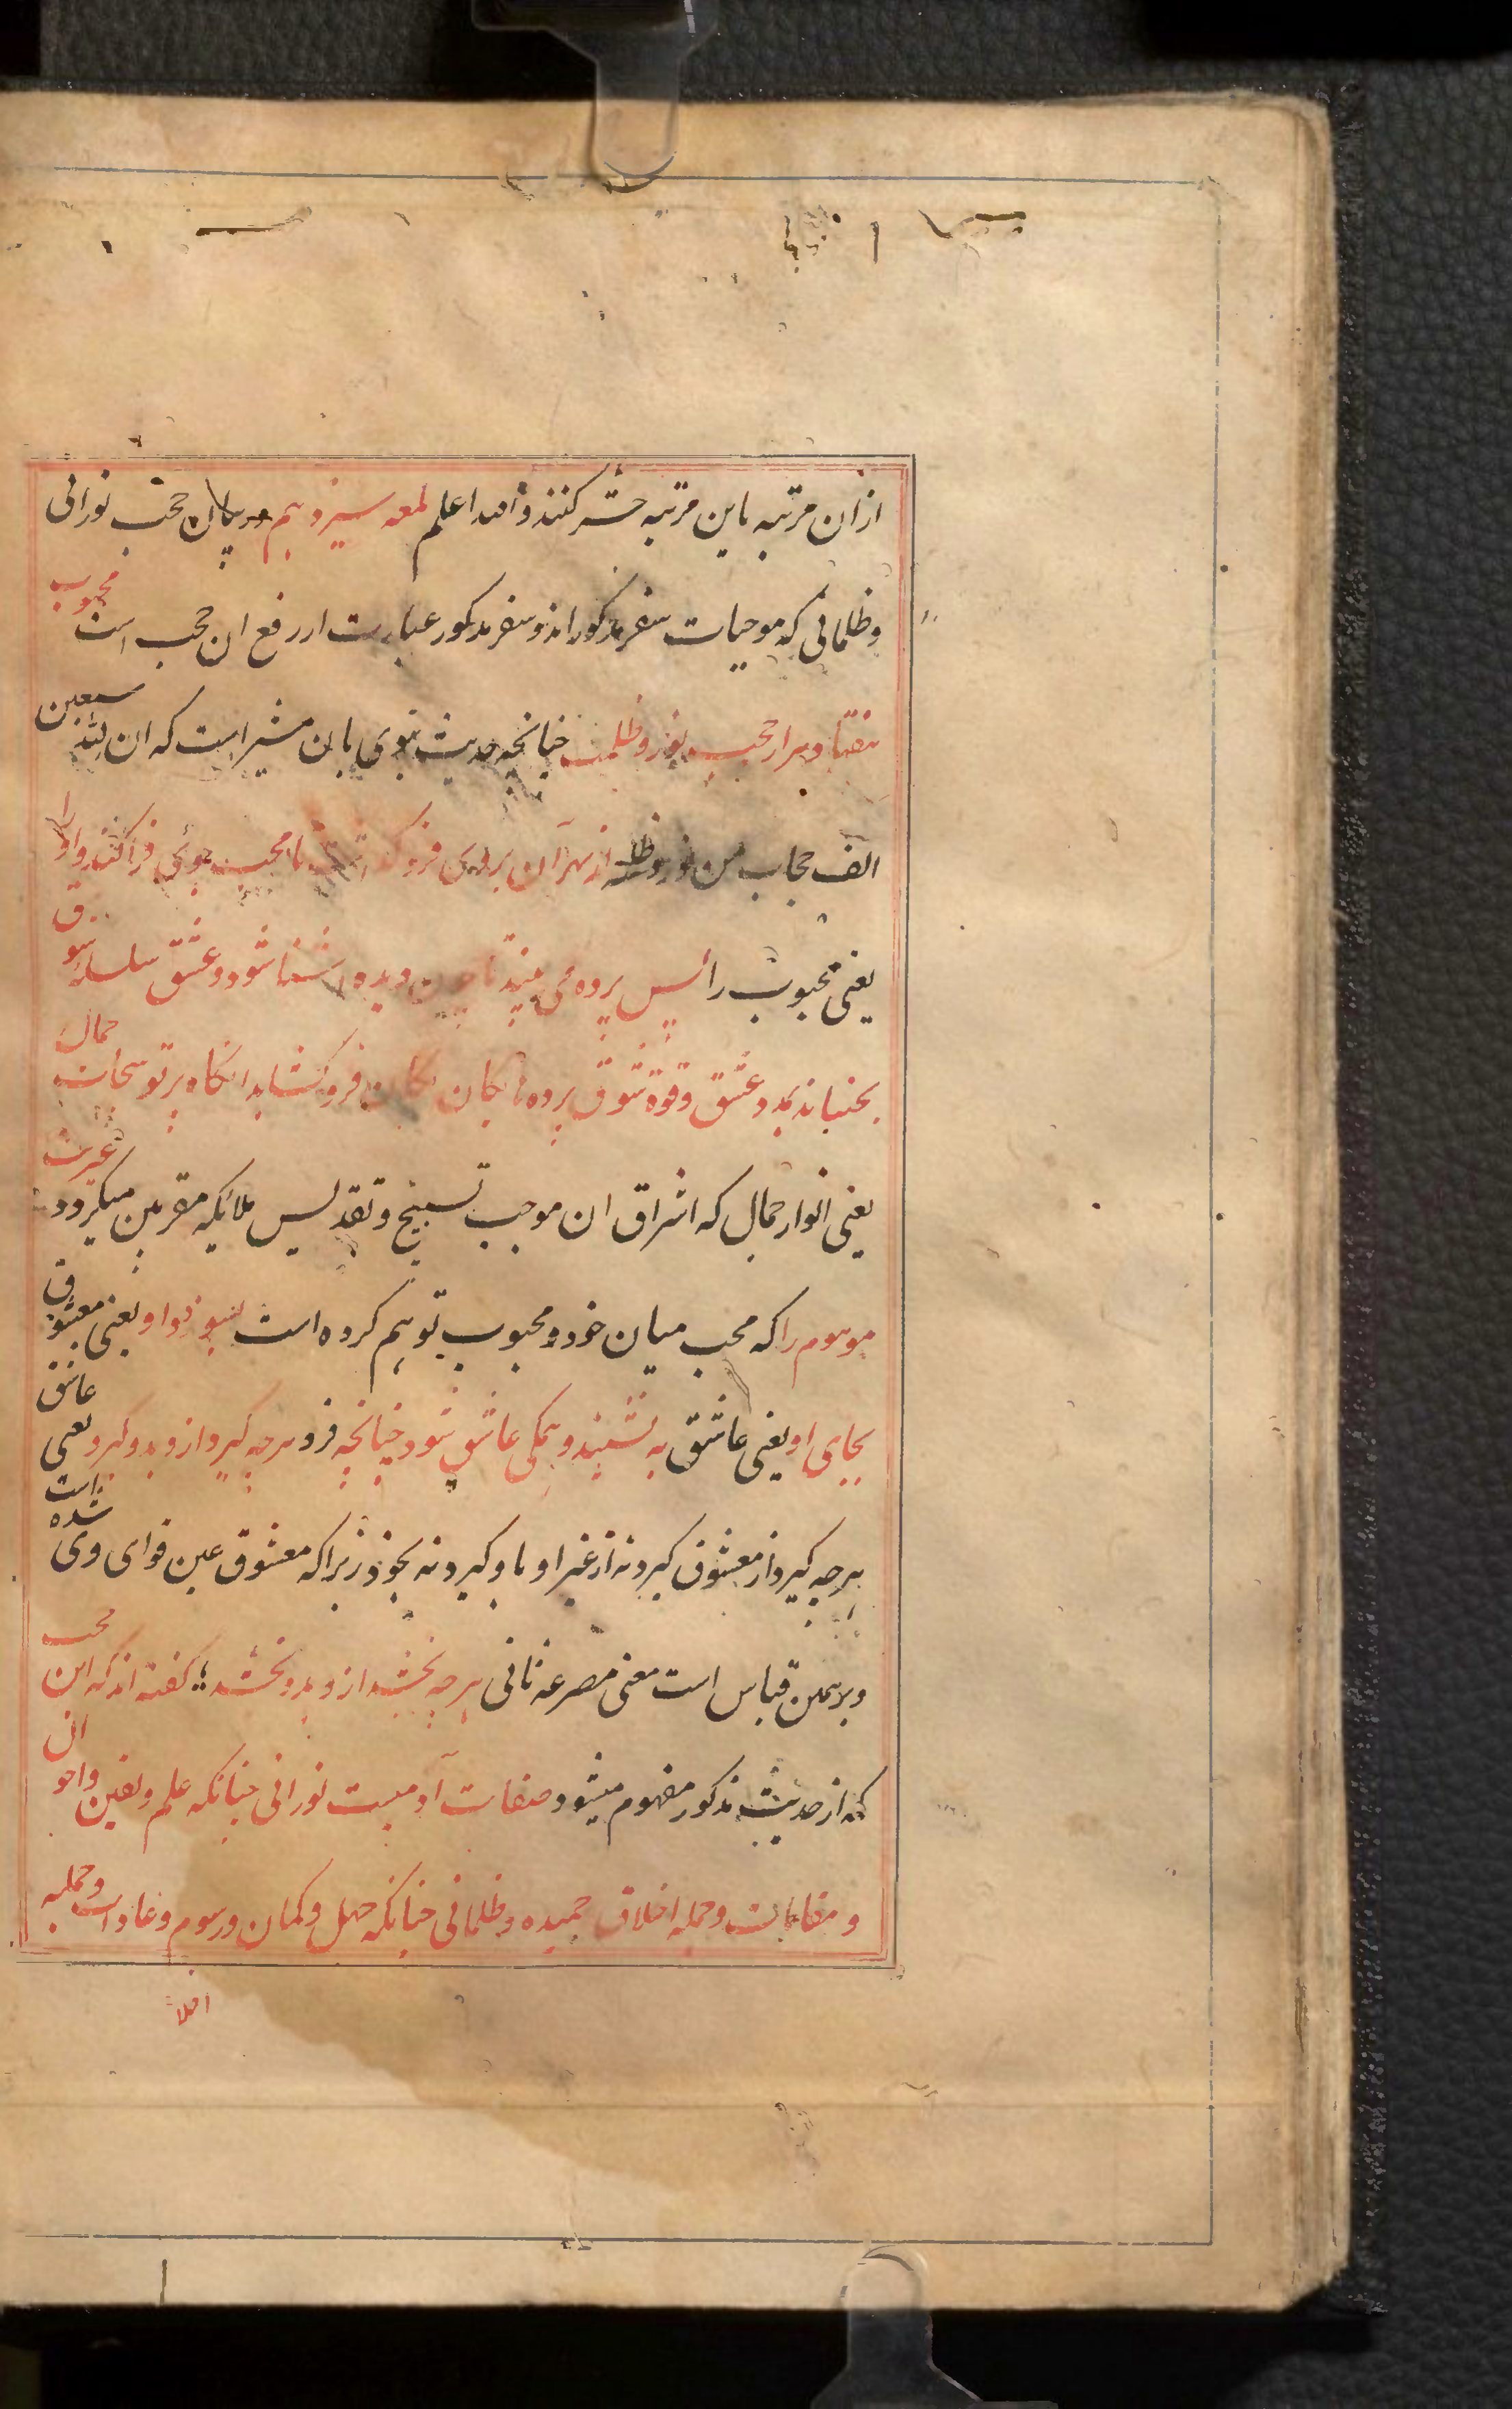 ازان مرتبه باین مرتبه حشر کنند والله اعلم لمعه سیزدهم در بیان حجب نورانی
وظلمانی که موجبات سفر مذکور اند و سفر مذکور عبارت از رفع ان حجب است محبوب
هفتاد هزار حجب نور و ظلمت چنانچه حدیث نبوی بان مشیر است که ان لله سبعین
الف حجاب من نور و ظلمة از بهر آن بر روی فرو تا محب خوی فرا کند و او را
یعنی محبوب را پس پرده می بیند تا چون دیده اشنا شود و عشق سلسله شوق
بجنباند بمدد عشق و قوة شوق پرده ها یکان یکان فرو کشاید انکاه پرتو سبحات جمال
یعنی انوار جمال که اشراق ان موجب تسبیح و تقدیس ملائکه مقربین میکردد غیریت
موهوم را که محب میان خود و محبوب توهم کرده است بسوزد و او یعنی معشوق
بجای او یعنی عاشق به نشیند و همکی عاشق شود چنانچه فرد هرچه کیرد ازو بدو کیرد یعنی عاشق
هرچه کیرد از معشوق کیرد نه از غیر او باو کیرد نه بخود زیرا که معشوق عین قوای وی شده است
و بر همین قیاس است معنی مصرعه ثانی هرچه بخشد ازو بدو بخشد کفته اند که این حجب
که از حدیث مذکور مفهوم میشود صفات آدمیست نورانی چنانکه علم و یقین و احوال
و مقامات و جمله اخلاق حمیده و ظلمانی چنانکه جهل و کمان و رسوم و عادات و جمله
اخلا